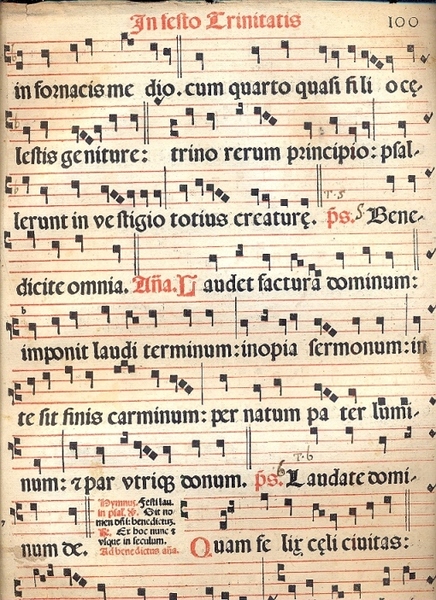 In festo Trinitatis 100
in fornacis me dio. cum quarto quasi fi li o cę-
lestis geniture: trino rerum principio: psal-
T. 5
lerunt in ve stigio totius creaturę. p̄s. 5 Bene-
dicite omnia. Añа. L audet factura dominum:
imponit laudi terminum: inopia sermonum: in
te sit finis carminum: per natum pa ter lumi-
T. 6
num: ⁊ par vtriqꝫ donum. p̄s. 6 Laudate domi-
Hymnus. Festi lau.
in psal. ℣. Sit no
men dñi: benedictus.
℟. Ex hoc nunc ⁊
vsque in seculum.
Ad benedictus aña.
num de. Quam fe lix cęli ciuitas: